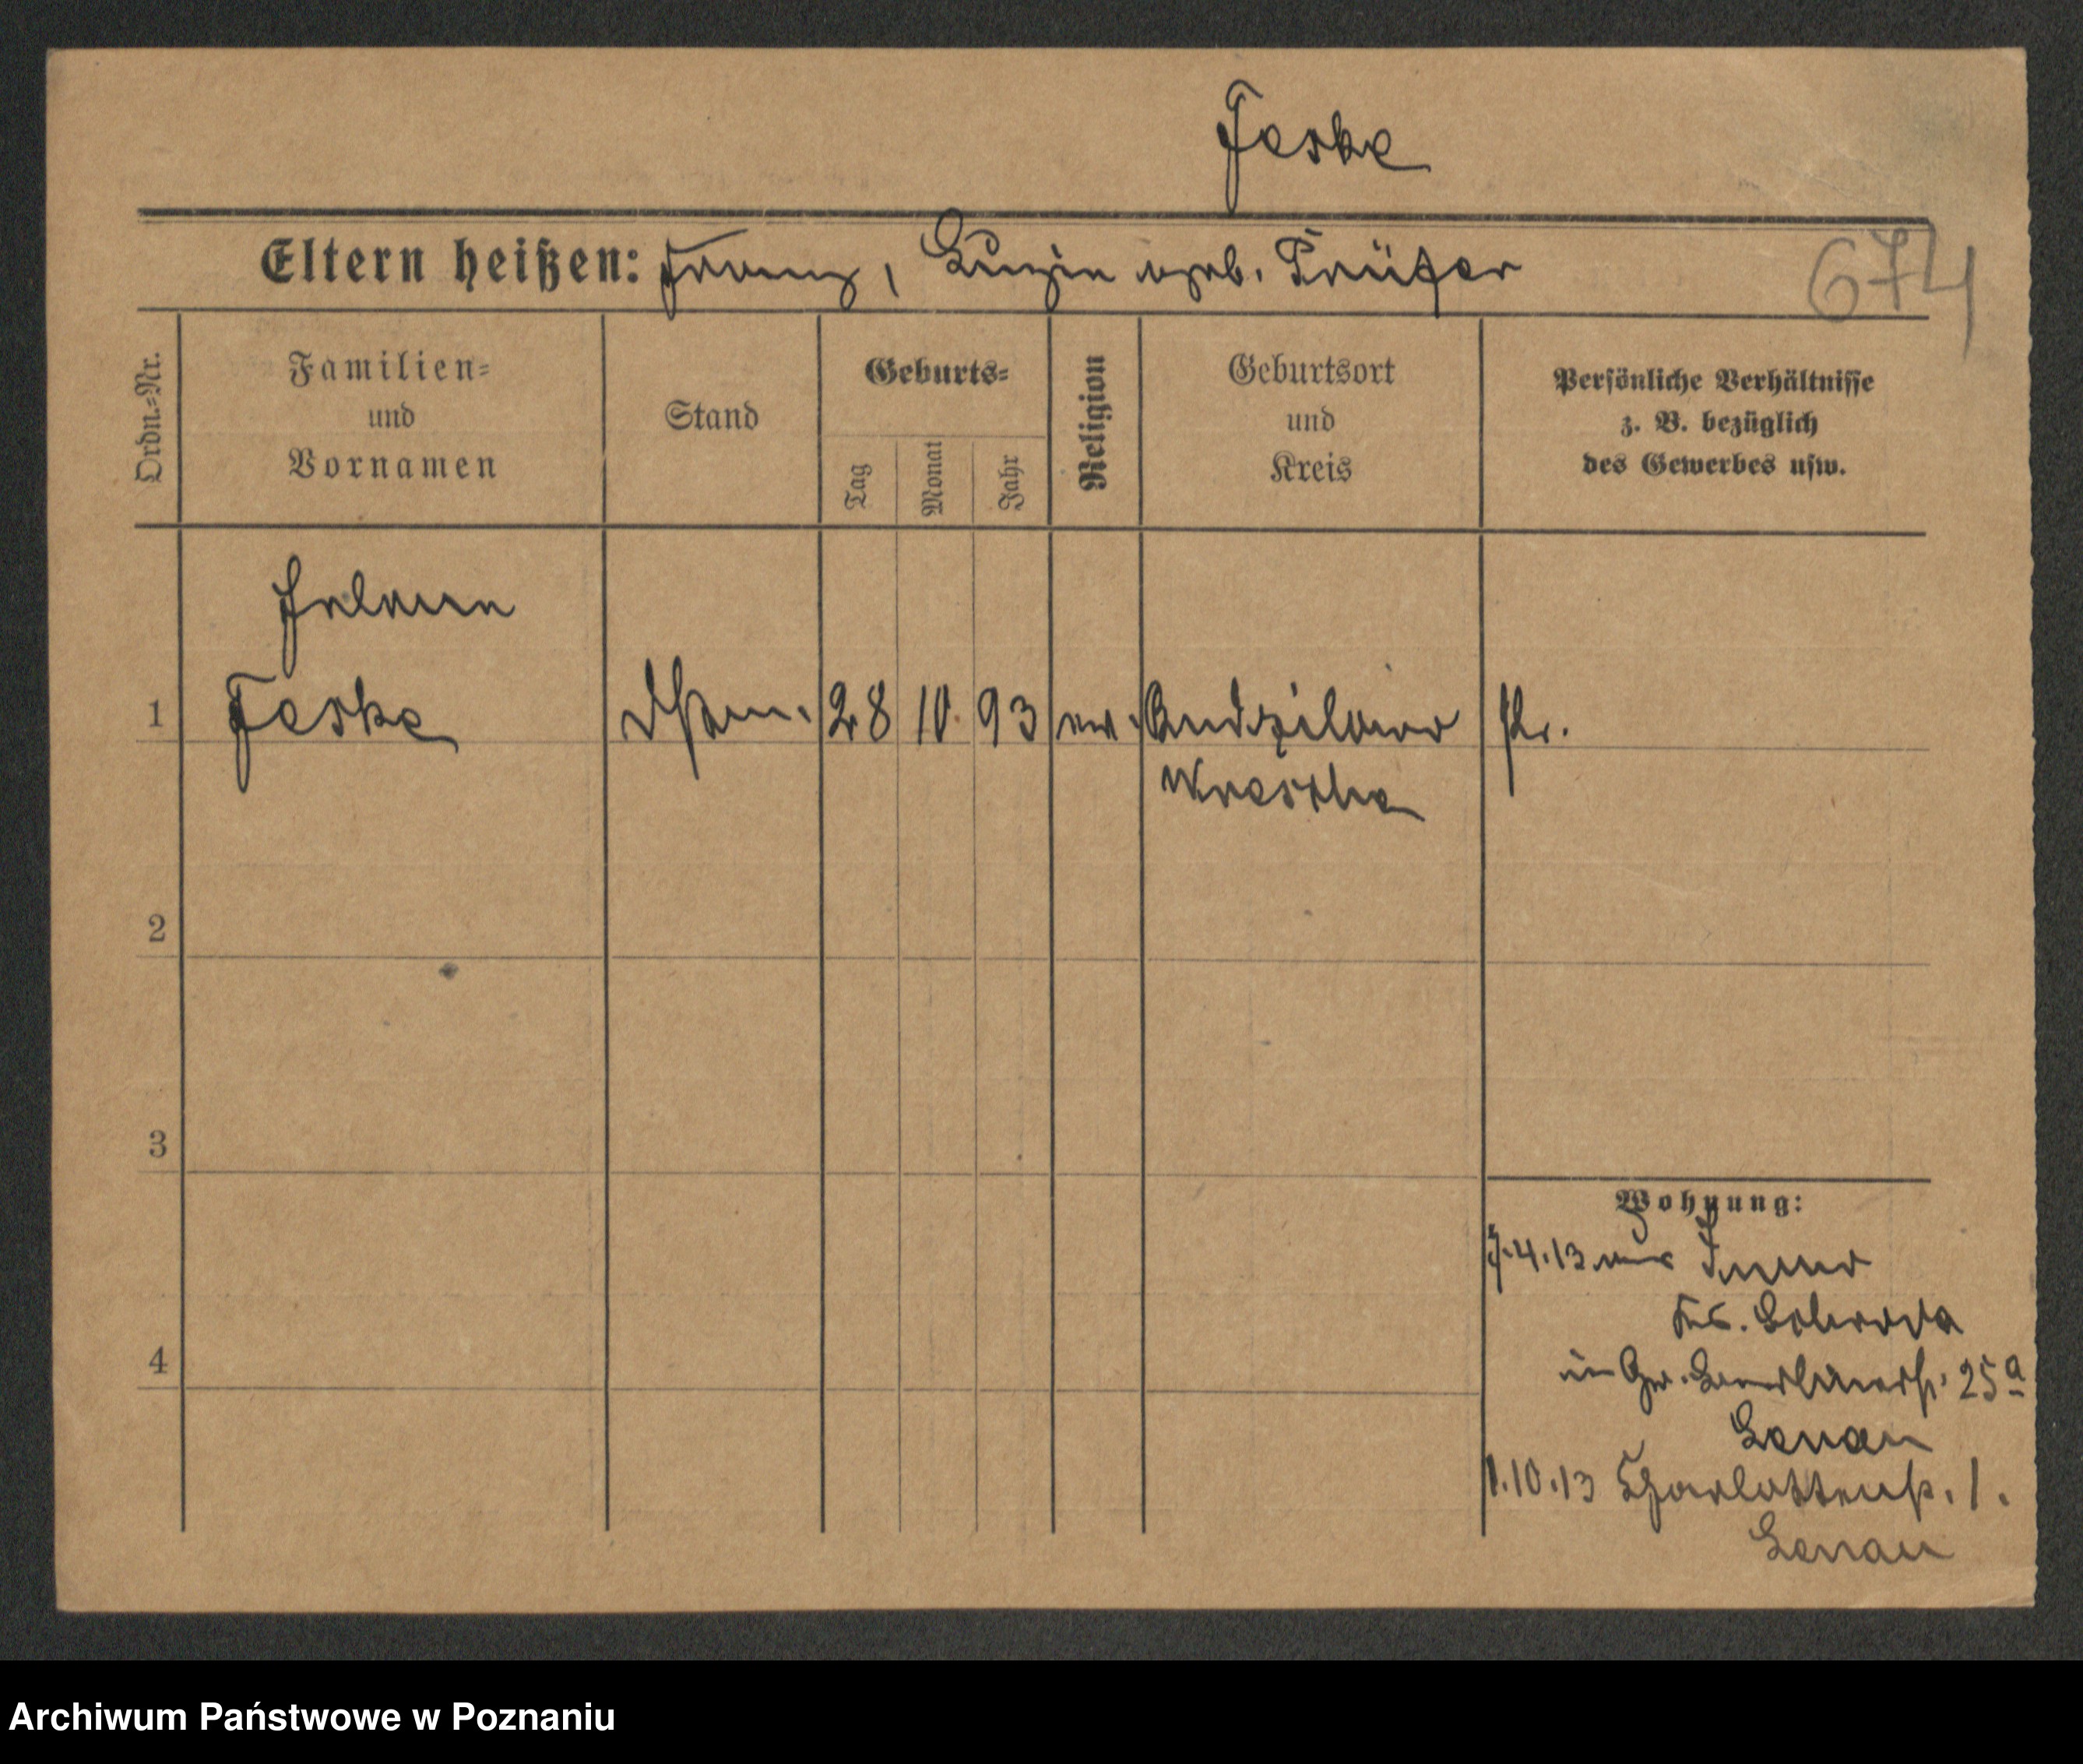 Jeske
Eltern heißen: Franz, Luzia geb. Prüfer
674
Ordn.-Nr.
Familien-
und
Vornamen
Stand
Geburts-
Tag
Monat
Jahr
Religion
Geburtsort
und
Kreis
Persönliche Verhältnisse
z. B. bezüglich
des Gewerbes usw.
Helene
1 Jeske 28 10. 93 ev. Pr.
Wreschen
2
3
Wohnung:
7.4.13 aus
4
25a
Lenau
1.10.13 Charlottenstr. 1.
Lenau
Archiwum Państwowe w Poznaniu